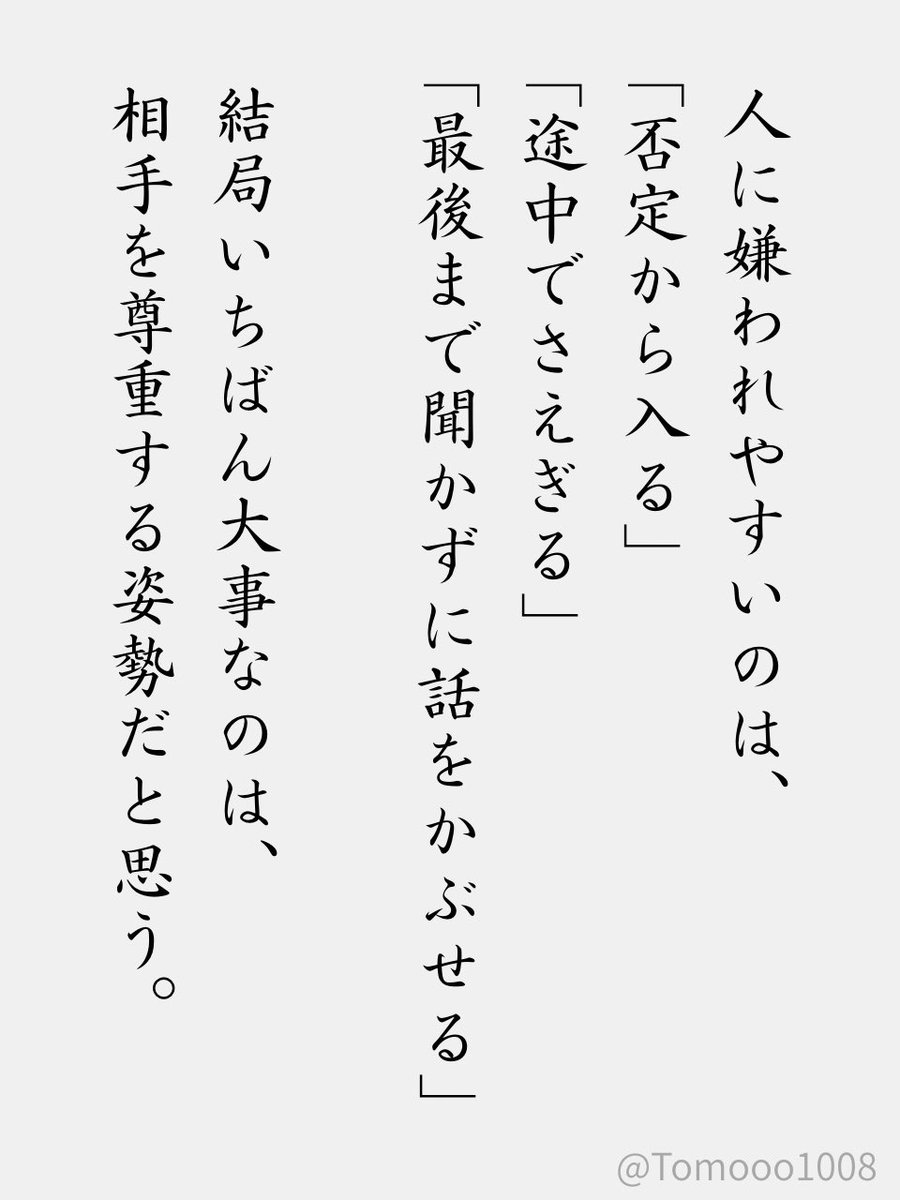 人に嫌われやすいのは、
「否定から入る」
「途中でさえぎる」
「最後まで聞かずに話をかぶせる」
結局いちばん大事なのは、
相手を尊重する姿勢だと思う。
@Tomooo1008